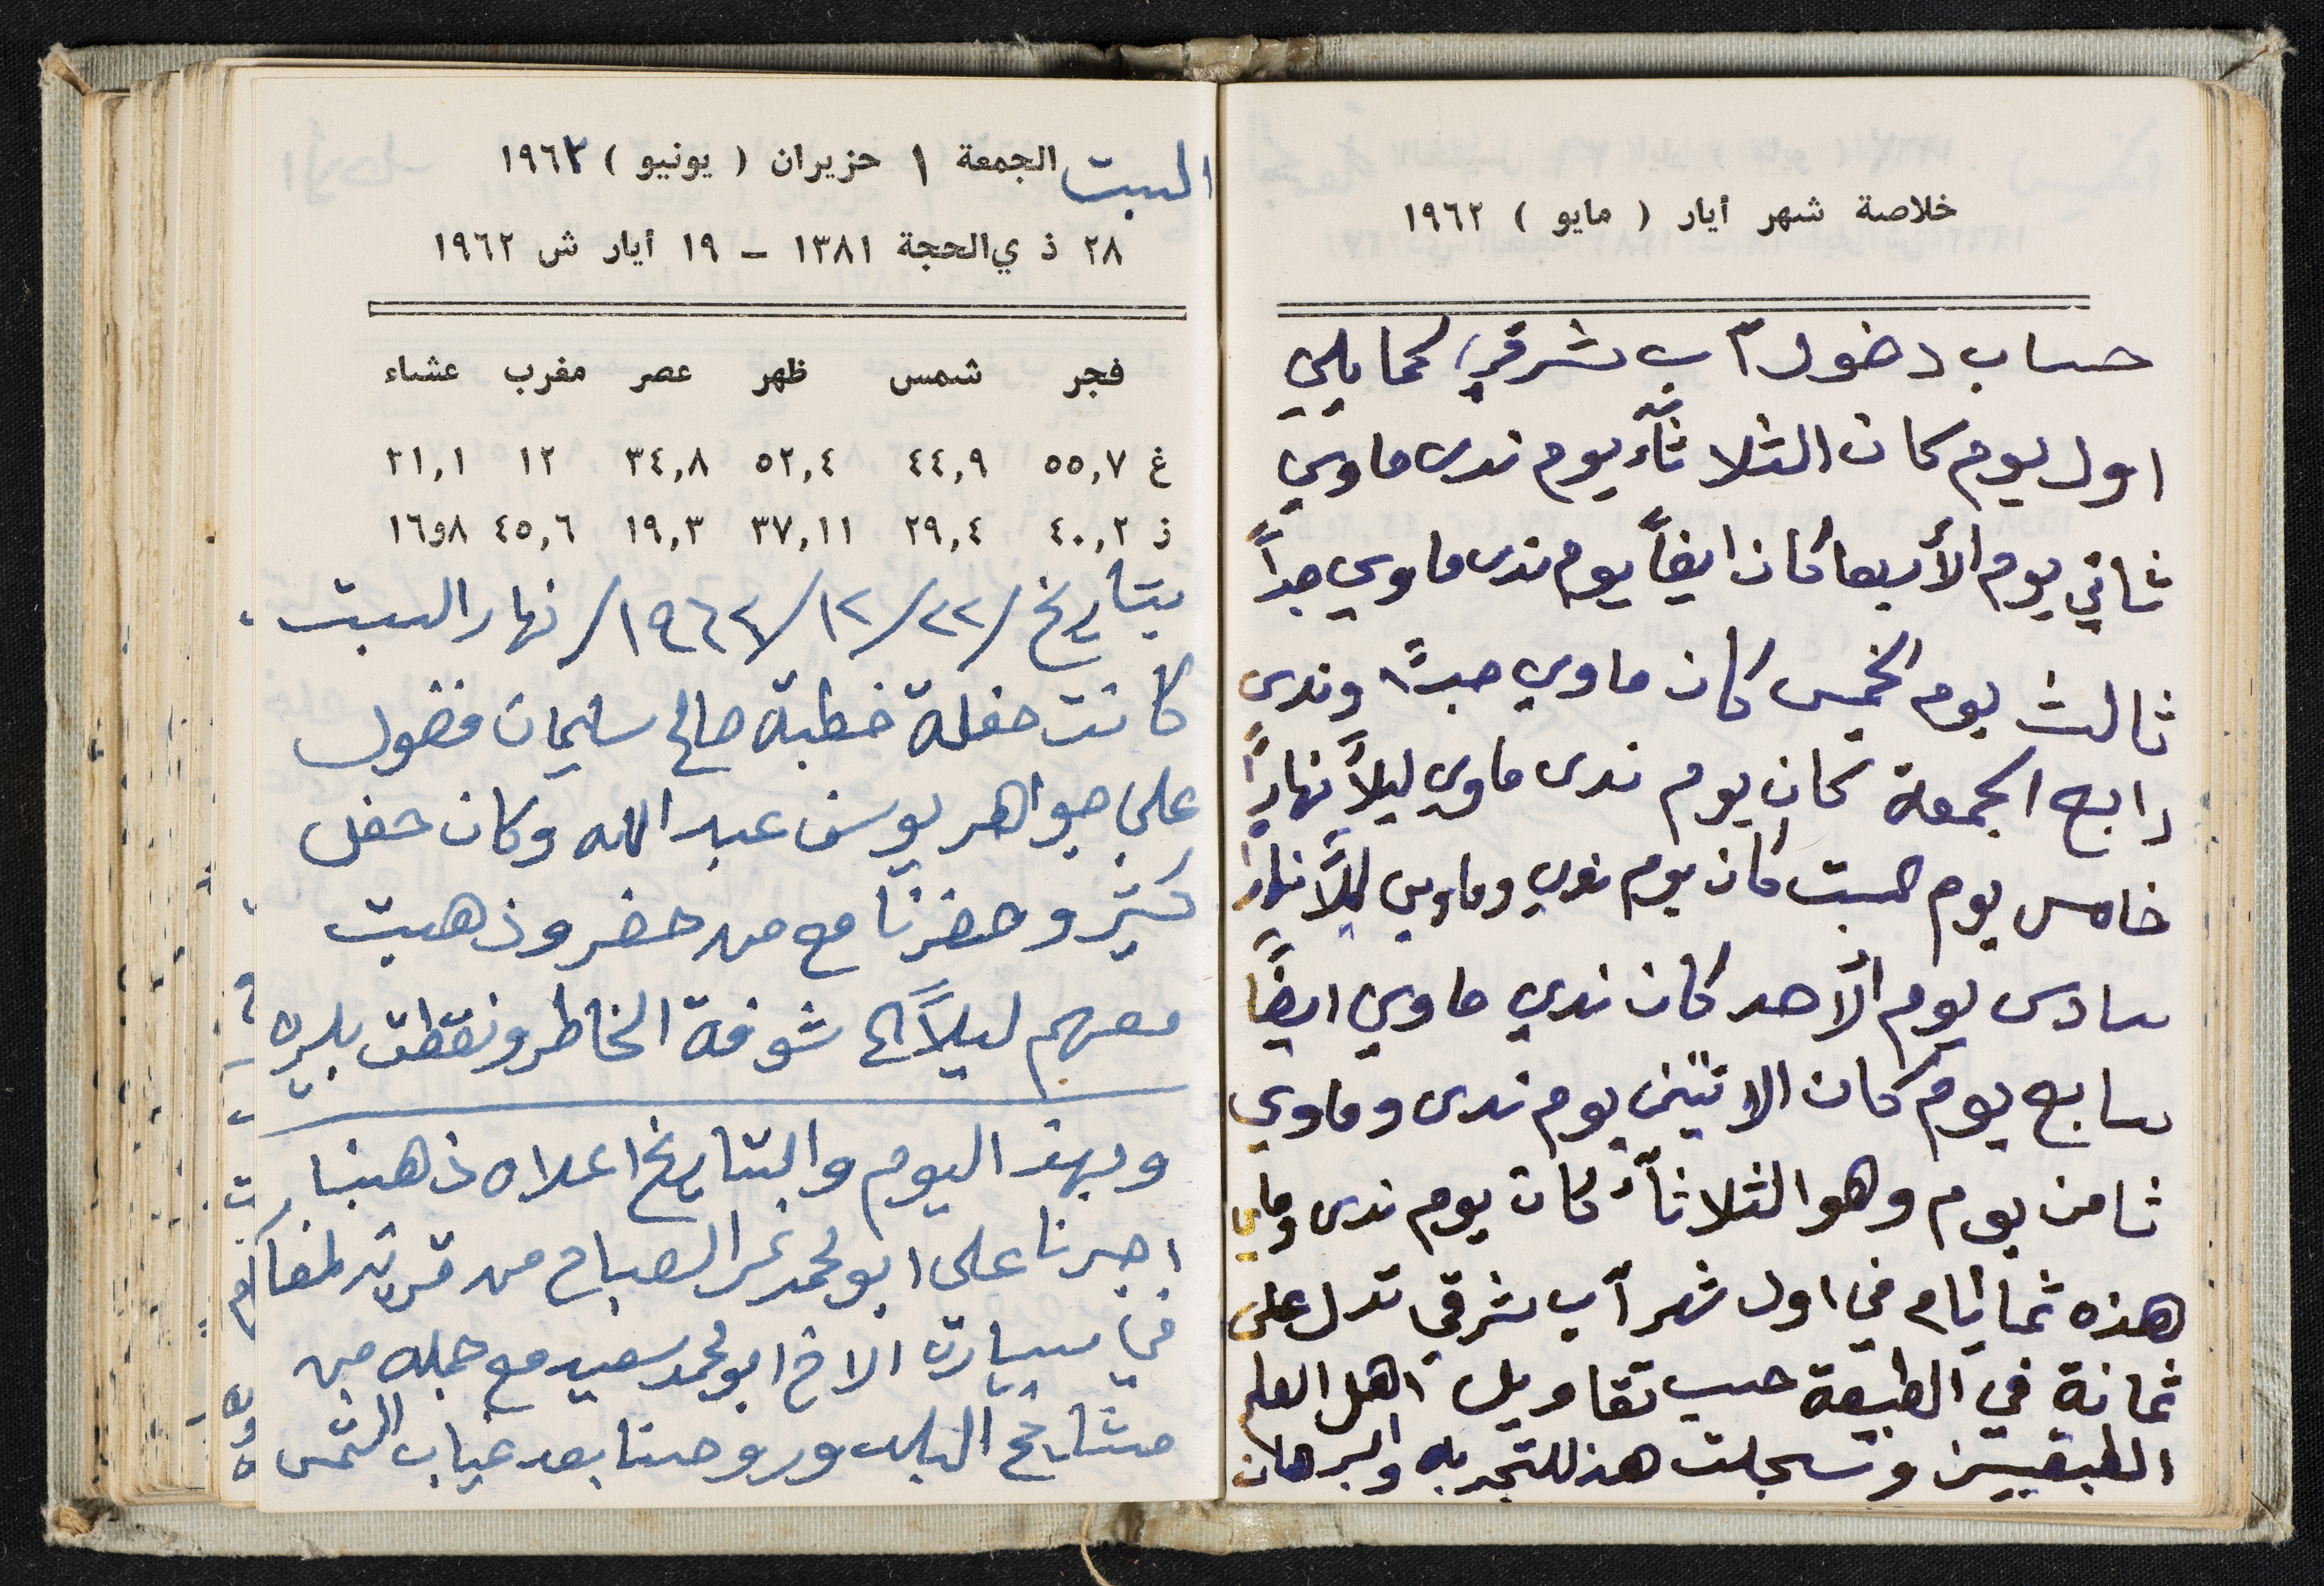 خلاصة شهر أيار ( مايو ) ١٩٦٢
حساب دخول آب شرقي كما يلي
اول يوم كان الثلاثآء يوم ندى ماوي
ثاني يوم الأربعا كان ايضاً يوم ندى ماوي جداً
ثالث يوم الخميس كان ماوي جداً وندى
رابع الجمعة كان يوم ندى ماوي ليلاً نهاراً
خامس يوم السبت كان يوم ندي وماوي ليلاً نهاراً
سادس يوم الأحد كان ندي ماوي ايضاً
سابع يوم كان الاثنين يوم ندى وماوي
ثامن يوم وهو الثلاثآء كان يوم ندى وماوي
هذه ثما نيام في اول شهر آب شرقي تدل على
ثمانة في الطبيعة حسب تقاويل اهل العلم
الطبقيين وسجلت هذ للتجربه والبرهان
السبت الجمعة ١ حزيران ( يونيو ) ١٩٦٢
٢٨ ذ ي الحجة ١٣٨١ – ١٩ أيار ش ١٩٦٢
فجر شمس ظهر عصر مغرب عشاء
غ ٥٥,٧ ٤٤,٩ ٥٢,٤ ٣٤,٨ ١٢ ٣١,١
ز ٤٠,٢ ٢٩,٤ ٣٧,١١ ١٩,٣ ٤٥,٦ ١٦و٨
بتاريخ /٢٢/١٢/١٩٦٢/ نهار السبت
كانت حفلة خطبة صالح سليمان فضول
على جواهر يوسف عبد الله وكان حفل
كثير وحضرنا مع من حضر وذهبت
معهم ليلاً الى شوفة الخاطر ونقطت بليره
وبهذ اليوم والتاريخ اعلاه ذهبنا
اجبرنا على ابو محمد نمر الصباح من
في سيارة الاخ ابو محمد سعيد مع جمله من
مشايخ البلد وروحنا بعد غياب الشمس